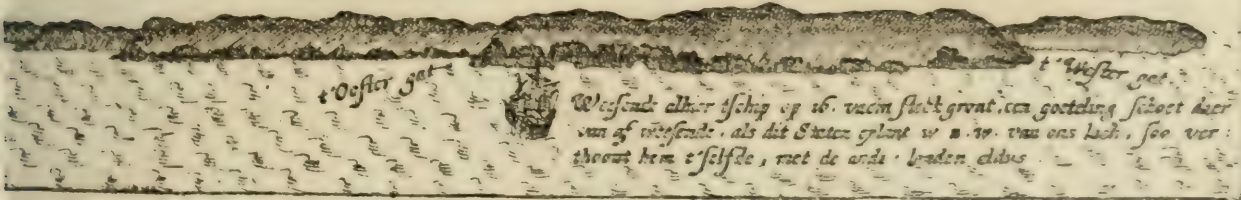 t'Oester gat
t'Wester gat
Weesende alhier tschip op 16. vaem steck gront, een goeteling schoet daer
van af weesende. als dit Staten eylant w n. w. van ons lach, soo ver:
thoont hem t'selfde, met de ande. landen aldus